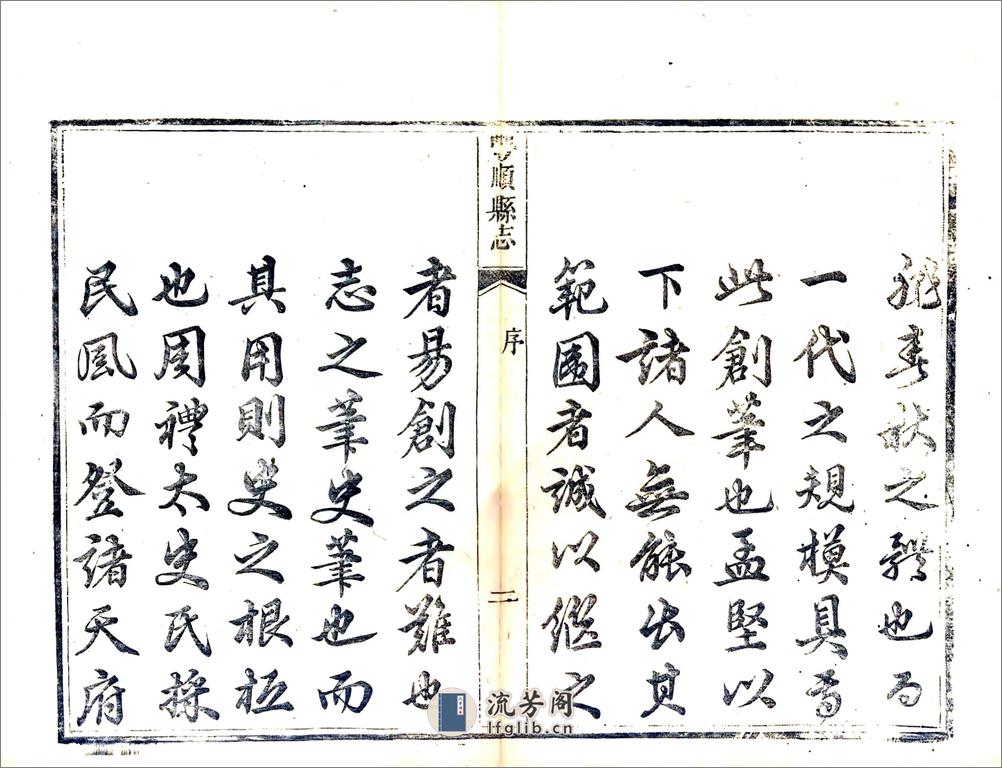 春秋之體也而
一代之規模具焉
此創筆也孟堅以
下諸人無能出其
範圍者誠以繼之
豐順縣志
序
二
者易創之者難也
志之筆史筆也而
其用則史之根柢
也周禮太史氏採
民風而登諸天府
流芳阁
lfglib.cn